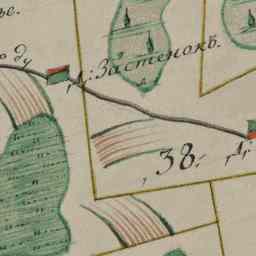 ье.
оду
Д: Застенокъ.
, 38:
Д: